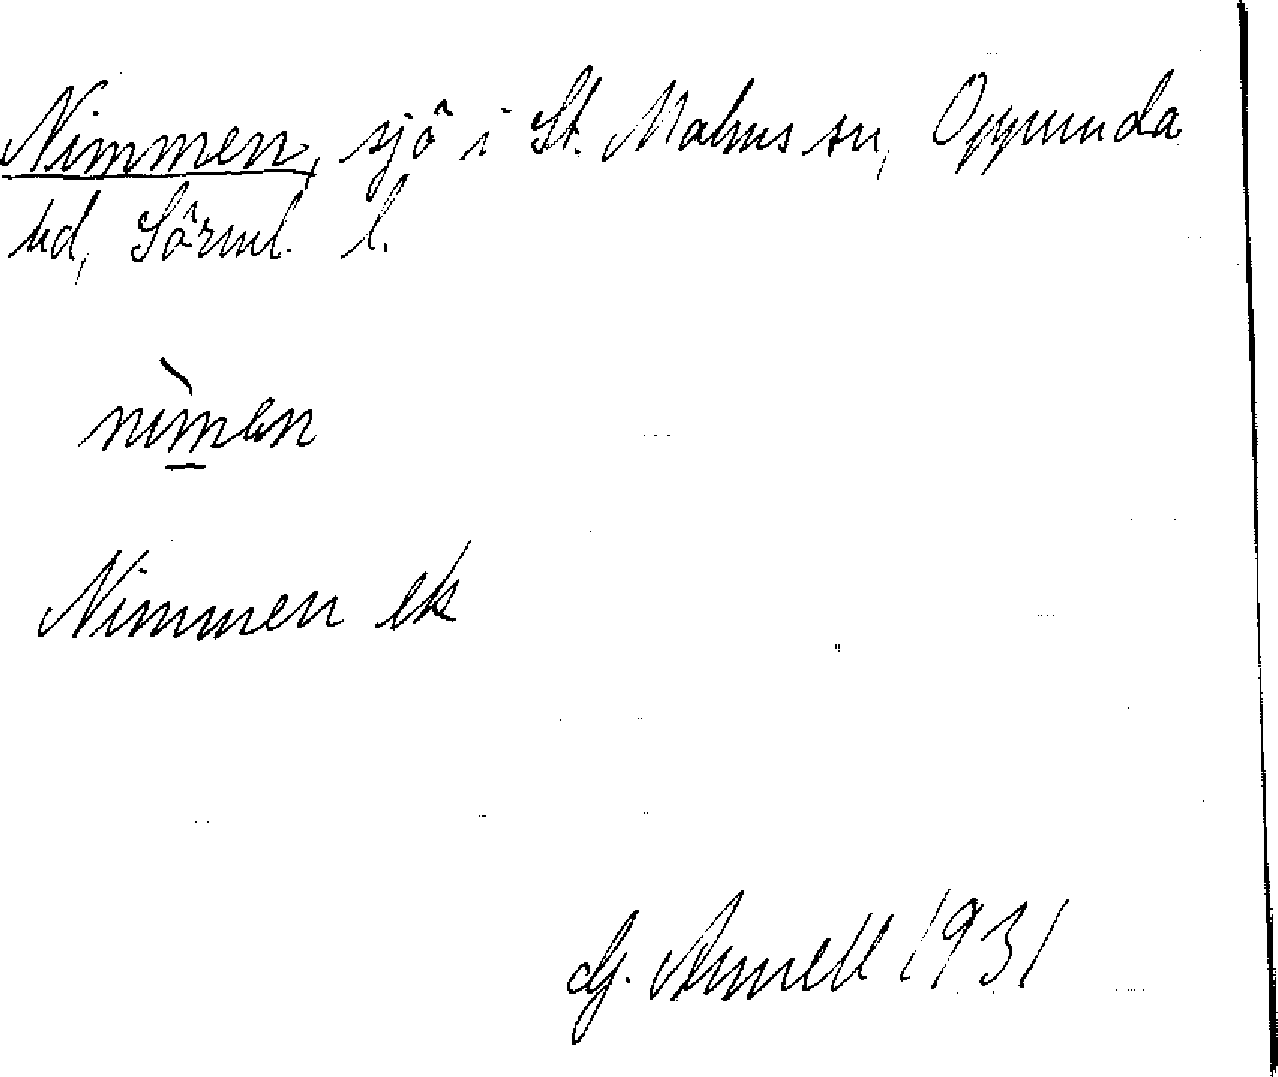 Nimmen, sjö i St. Malms sn, Oppunda
hd, Sörml. l.
nìmen
Nimmen ek
G. Arnell 1931